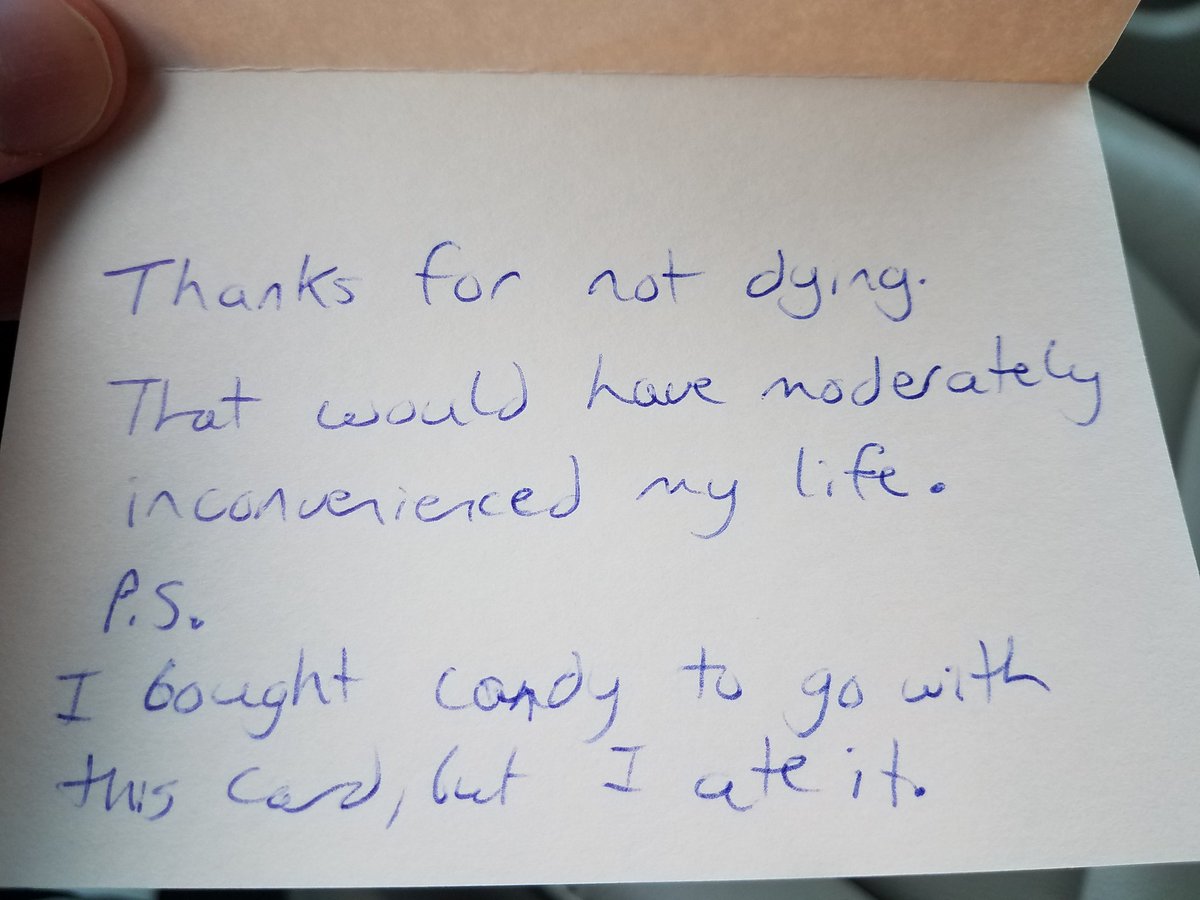 Thanks for not dying.
That would have moderately
inconvenienced my life.
P.S.
I bought candy to go with
this card, but I ate it.